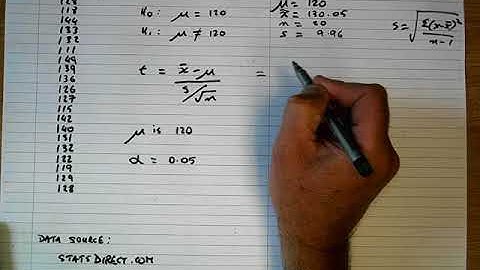 128
118
144
133
111
149
139
136
126
127
115
142
140
131
132
122
119
129
128
H₀: μ = 120
H₁: μ ≠ 120
μ = 120
x̄ = 130.05
n = 20
s = 9.96
s = √Σ(x-x̄)²/n-1
t = x̄-μ / s/√n =
μ is 120
α = 0.05
DATA SOURCE:
STATSDIRECT.COM